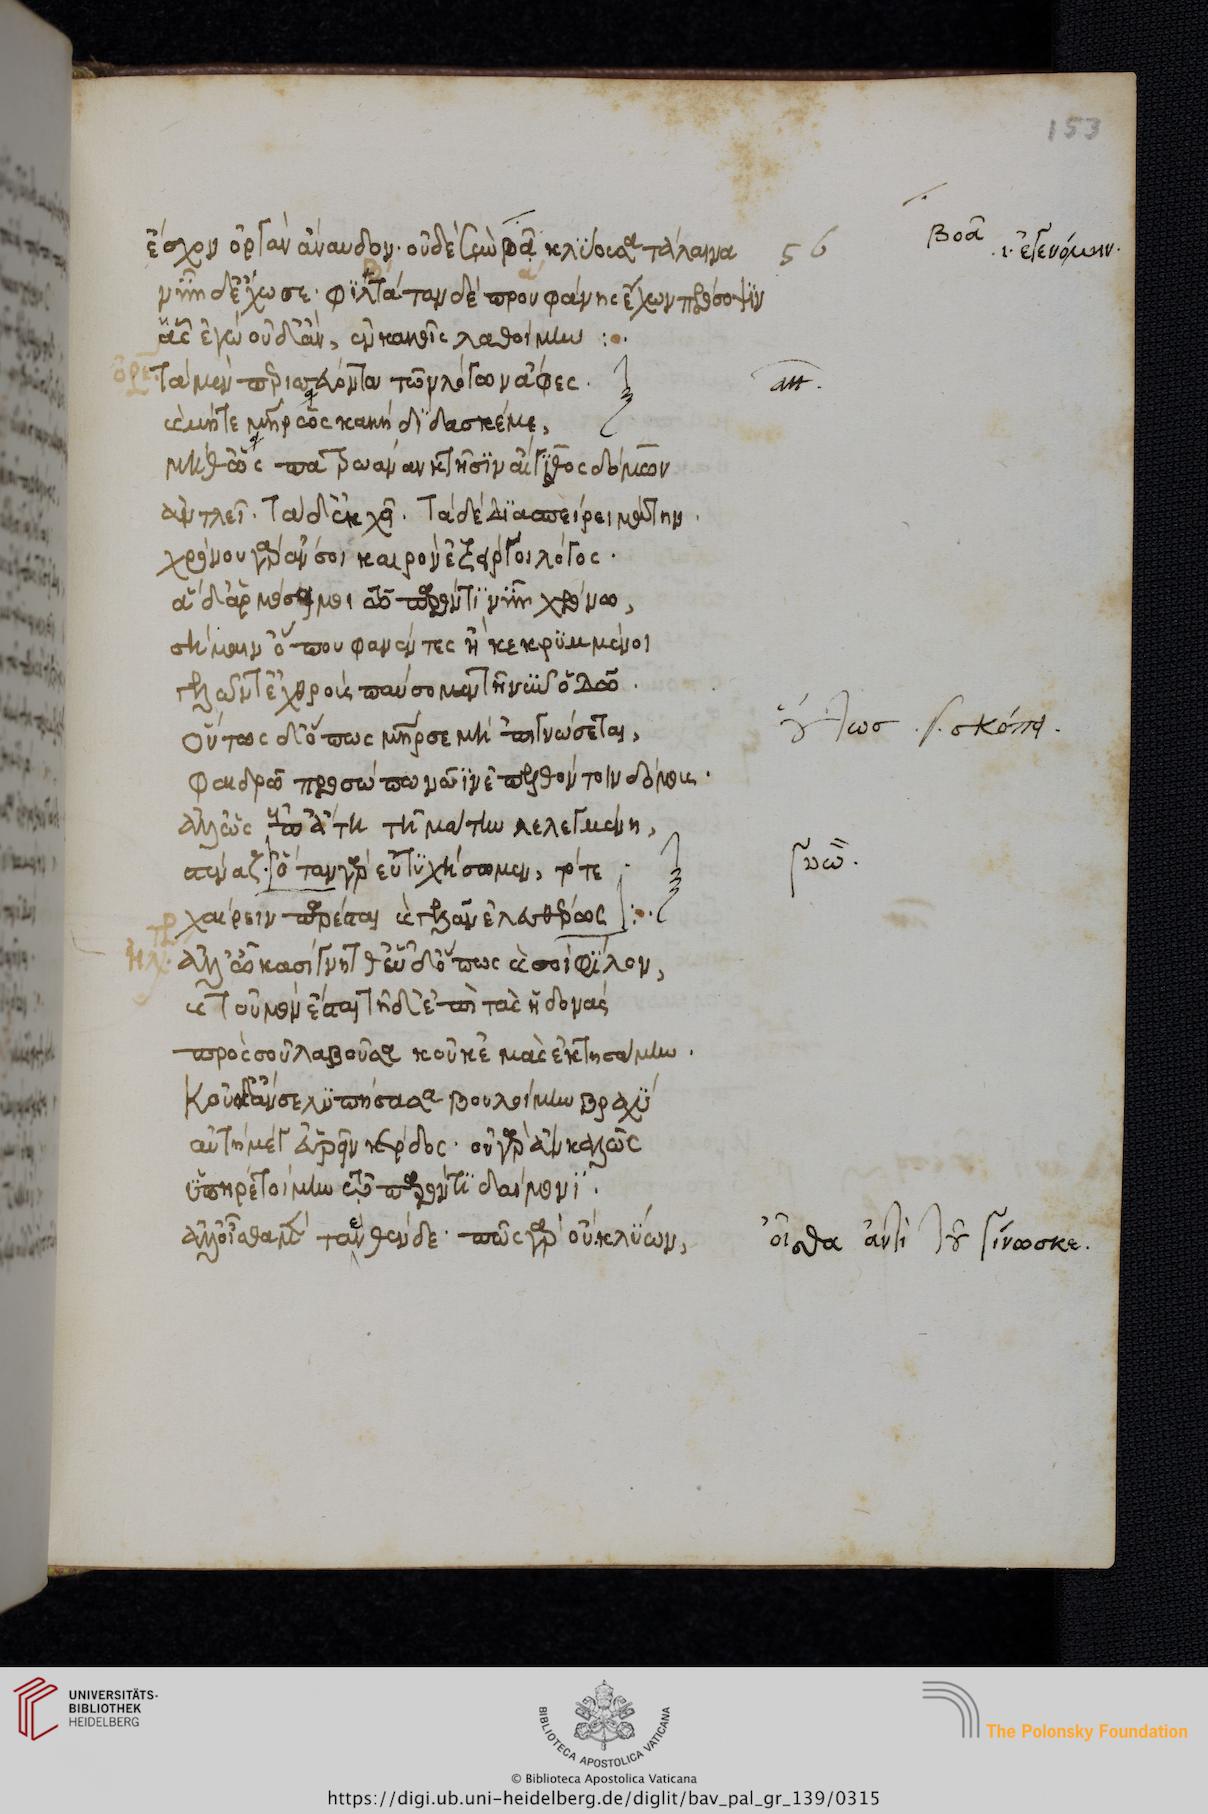 153
ἔσχον ὀργὰν ἄναυδον· οὐδὲ σὺν βοᾷ κλύουσα τάλαινα
56
βοᾷ .ι. ἐγενόμην.
νῦν δ' ἔχω σε· φιλτάταν δὲ προυφάνης ἔχων πρόσοψιν
ἇς ἐγὼ οὐδ' ἂν, ἐν κακοῖς λαθοίμην :·
ὀρέ. τὰ μὲν περισσεύοντα τῶν λόγων ἄφες·
ἀττ.
καὶ μήτε μήτηρ ὡς κακὴ δίδασκέ με,
μήθ' ὡς πατρώαν κτῆσιν αἴγισθος δόμων
ἀντλεῖ· τὰ δ' ἐκχεῖ· τὰ δὲ διασπείρει μάτην·
χρόνου γὰρ ἄν σοι καιρὸν ἐξείργοι λόγος·
ἃ δ' ἁρμόσει μοι τῷ παρόντι νῦν χρόνῳ,
σήμαιν' ὅπου φανέντες ἢ κεκρυμμένοι
γελῶντας ἐχθροὺς παύσομεν τῇ νῦν ὁδῷ·
οὕτως δ' ὅπως μήτηρ σε μὴ 'πιγνώσεται,
οὕτως .γ. σκόπει.
φαιδρῷ προσώπῳ νῷν ἐπελθόντοιν δόμοις·
ἀλλ' ὡς ἐπ' ἄτῃ τῇ μάτην λελεγμένῃ,
στέναζ'· ὅταν γὰρ εὐτυχήσωμεν, τότε
γνώ.
χαίρειν παρέσται καὶ γελᾶν ἐλευθέρως :·
ἠλ. ἀλλ' ὦ κασίγνηθ' ὧδ' ὅπως καὶ σοὶ φίλον,
καὶ τοὐμὸν ἔσται τῇδ' ἐπεὶ τὰς ἡδονὰς
πρὸς σοῦ λαβοῦσα κοὐκ ἐμὰς ἐκτησάμην·
κοὐδ' ἄν σε λυπήσασα βουλοίμην βραχὺ
αὐτὴ μέγ' εὑρεῖν κέρδος· οὐ γὰρ ἂν καλῶς
ὑπηρετοίμην τῷ παρόντι δαίμονι·
ἀλλ' οἶσθα μὲν τἀνθένδε· πῶς γὰρ οὔ κλύων,
οἶσθα ἀντὶ τοῦ γίνωσκε.
UNIVERSITÄTS-
BIBLIOTHEK
HEIDELBERG
BIBLIOTECA APOSTOLICA VATICANA
© Biblioteca Apostolica Vaticana
The Polonsky Foundation
https://digi.ub.uni-heidelberg.de/diglit/bav_pal_gr_139/0315